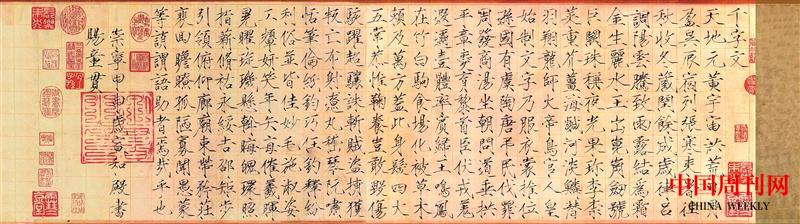 千字文
天地元黄宇宙洪荒
盈昃辰宿列張寒来暑
秋收冬藏閏餘成歲律吕
調陽雲騰致雨露結為霜
金生麗水玉出崑崗劍號
巨闕珠稱夜光果珍李柰
菜重芥薑海鹹河淡鱗潛
羽翔龍師火帝鳥官人皇
始制文字乃服衣裳推位
遜國有虞陶唐弔民伐罪
周發商湯坐朝問道垂拱
平章愛育黎首臣伏戎羌
遐邇壹體率賓歸王鳴鳳
在竹白駒食場化被草木
賴及萬方蓋此身髮四大
五常恭惟鞠養豈敢毀傷
駭躍超驤誅斬賊盗捕獲
叛亡布射遼丸嵇琴阮嘯
恬筆倫紙鈞巧任釣釋紛
利俗並皆佳妙毛施淑姿
工顰妍笑年矢每催羲暉
晃曜琁璣懸斡晦魄環照
指薪脩祜永綏吉邵矩步
引領俯仰廊廟束帶矜莊
裵回瞻眺孤陋寡聞愚蒙
等誚謂語助者焉哉乎也
崇寧甲申歲宣和殿書
賜童貫
中国周刊网
CHINA WEEKLY